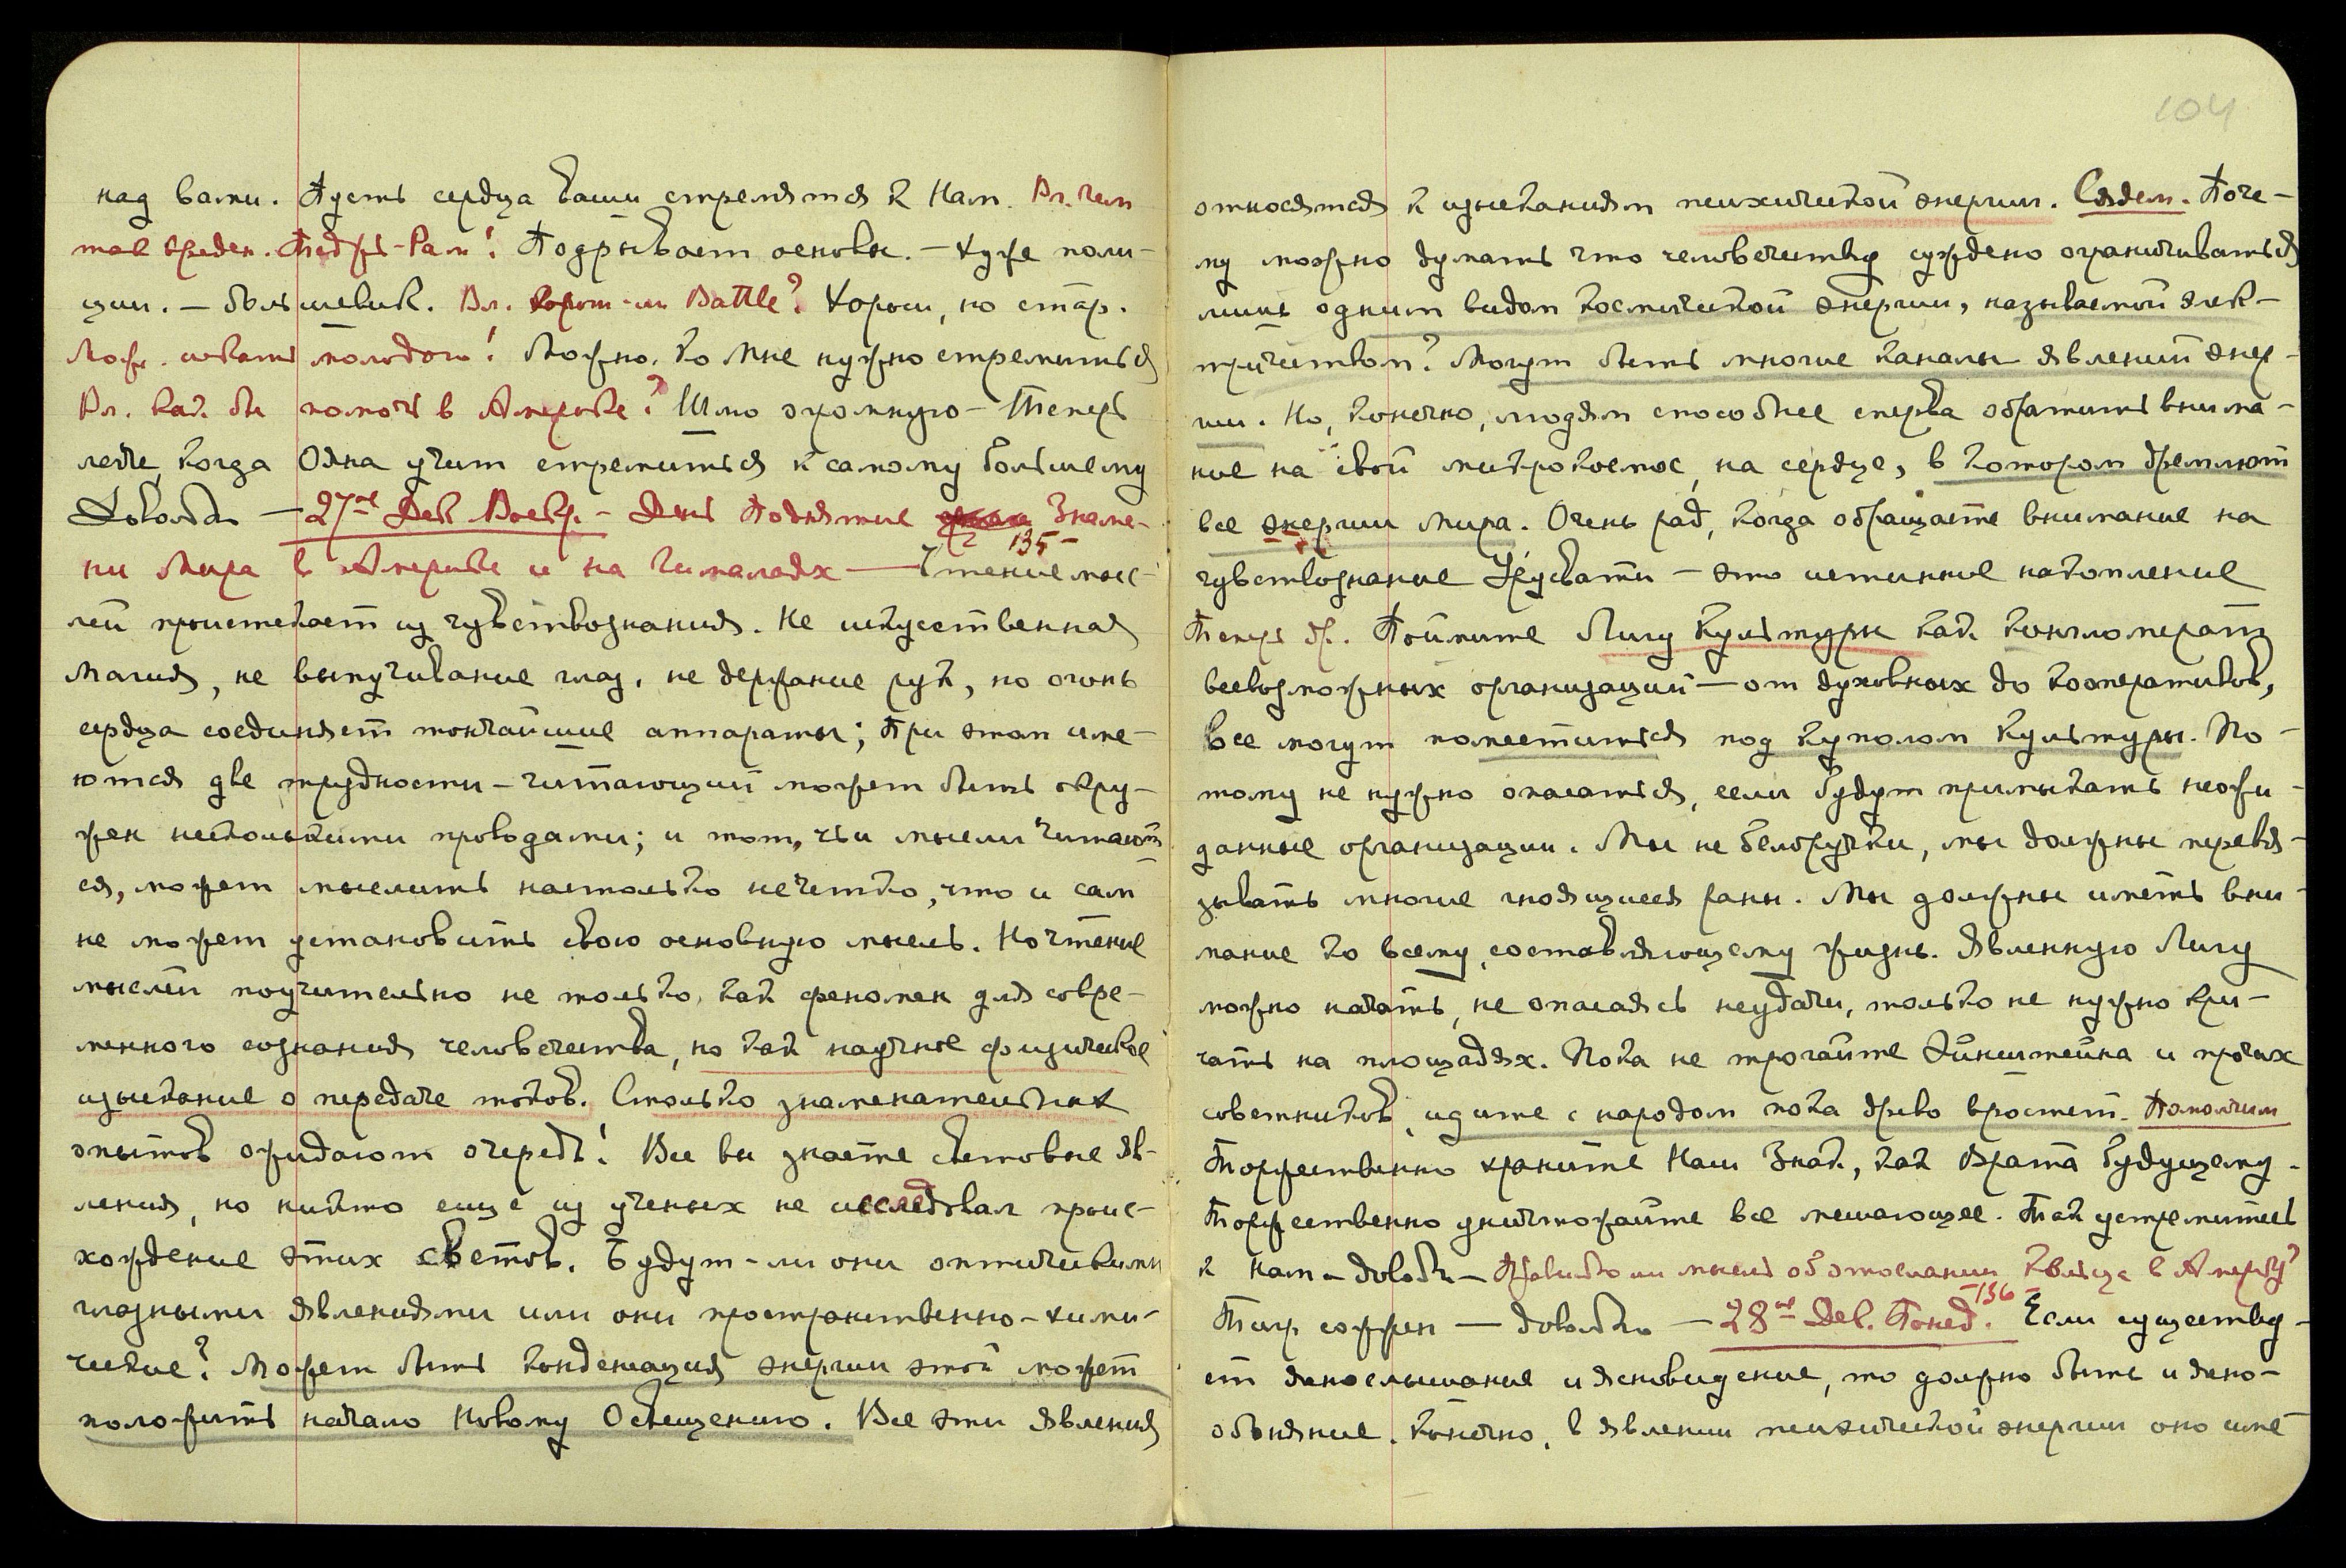 над вами. Пусть сердца ваши стремятся к Нам. Вл. чем
так вреден. Тедж-Рам! Подрывает основы. — Хуже поли-
ции. — большевик. Вл. Battle? Хорош, но стар.
Мож. искать молодого! Можно. Ко Мне нужно стремиться
Вл. Как бы помочь в Америке? Шлю огромную — Теперь
легче, когда Одна учит стремиться к самому большему
Довольно — 27ое Дек Воскр. — День Поднятие Знаме-
ни Мира в Америке и на Гималаях — 135 — Чтение мыс-
лей проистекает из чувствознания. Не искусственная
магия, не выпучивание глаз, не держание рук, но огонь
сердца соединяет тончайшие аппараты; При этом име-
ются две трудности — читающий может быть окру-
жен несколькими проводами; и тот, чьи мысли читают
ся, может мыслить настолько нечетко, что и сам
не может установить свою основную мысль. Но чтение
мыслей поучительно не только, как феномен для совре-
менного сознания человечества, но как научное физическое
изыскание о передаче токов. Столько знаменательных
опытов ожидают очередь! Все вы знаете световые яв-
ления, но никто еще из ученых не исследовал проис-
хождение этих светов. Будут-ли они оптическими
глазными явлениями или они пространственно-хими-
ческие? Может быть конденсация энергии этой может
положить начало Новому Освещению. Все эти явления
104
относятся к изысканиям психической энергии. Сядем. Поче-
му можно думать что человечеству суждено ограничиваться
лишь одним видом космической энергии, называемой элек-
тричеством? Могут быть многие каналы явлений энер-
гии. Но, конечно, людям способнее сперва обратить внима-
ние на свой микрокосмос, на сердце, в котором дремлют
все энергии мира. Очень рад, когда обращаете внимание на
чувствознание Урусвати — это истинное накопление
Теперь др. Поймите Лигу Культуры как конгломерат
всевозможных организаций — от духовных до кооперативов,
все могут поместиться под куполом Культуры. По-
тому не нужно опасаться, если будут примыкать неожи-
данные организации. Мы не белоручки, мы должны перевя-
зывать многие гноящиеся раны. Мы должны иметь вни-
мание ко всему, составляющему жизнь. Явленную Лигу
можно начать, не опасаясь неудачи, только не нужно кри-
чать на площадях. Пока не трогайте Эйнштейна и прочих
советников, идите с народом пока древо врастет. Помолчим
Торжественно храните Наш Знак, как Врата будущему.
Торжественно уничтожайте все мешающее. Так устремитесь
к Нам — довольно — Правильно ли мысль об отослании Кольца в Америку?
Тигр сожжен — довольно — 28ое Дек. Понед. 136 — Если существу-
ет яснослышание и ясновидение, то должно быть и ясно-
обоняние. Конечно, в явлении психической энергии оно име